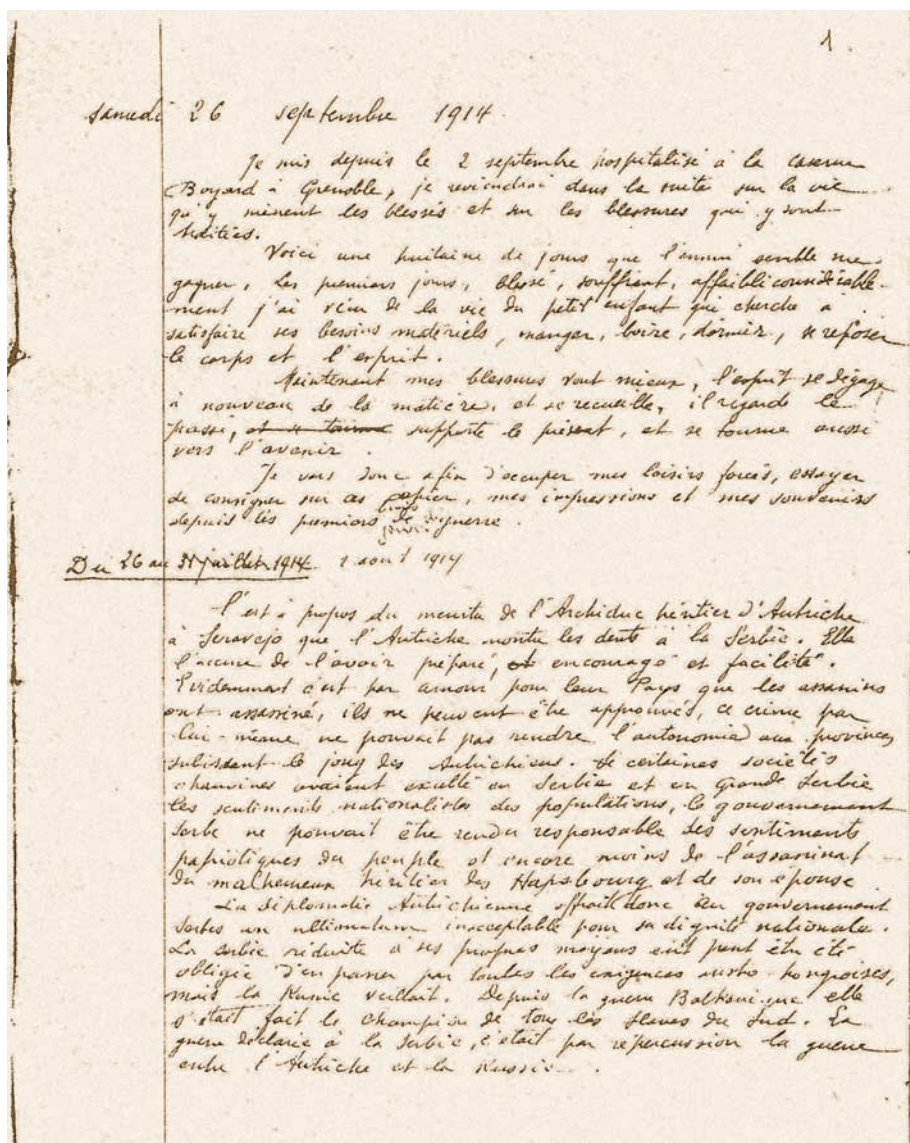 1.
Samedi 26 septembre 1914
Je suis depuis le 2 septembre hospitalisé à la caserne
Boyard à Grenoble, je reviendrai dans la suite sur la vie
qu'y mènent les blessés et sur les blessures qui y sont
traitées.
Voici une huitaine de jours que l'ennui semble me
gagner, Les premiers jours, blessé, souffrant, affaibli considérable-
ment j'ai vécu de la vie du petit enfant qui cherche à
satisfaire ses besoins matériels, manger, boire, dormir, se reposer
le corps et l'esprit.
Maintenant mes blessures vont mieux, l'esprit se dégage
à nouveau de la matière, et se recueille, il regarde le
passé, et se tourne supporte le présent, et se tourne aussi
vers l'avenir.
Je vais donc afin d'occuper mes loisirs forcés, essayer
de consigner sur ces papier, mes impressions et mes souvenirs
depuis les premiers jours de guerre.
Du 26 au 31 juillet 1914 2 aout 1914
C'est à propos du meurtre de l'Archiduc héritier d'Autriche
à Seravejo que l'Autriche montra les dents à la Serbie. Elle
l'accuse de l'avoir préparé, et encouragé et facilité.
Evidemment c'est par amour pour leur Pays que les assassins
ont assassiné, ils ne peuvent être approuvés, ce crime par
lui-même ne pouvait pas rendre l'autonomie aux provinces
subissant le joug des Autrichiens. Si certaines sociétés
chauvines avaient exalté en Serbie et en Grande Serbie
les sentiments nationalistes des populations, le gouvernement
serbe ne pouvait être rendu responsable des sentiments
patriotiques du peuple et encore moins de l'assassinat
du malheureux héritier des Hapsbourg et de son épouse
La diplomatie Autrichienne offrait donc au gouvernement
serbes un ultimatum inacceptable pour sa dignité nationale.
La serbie réduite à ses propres moyens eût peut être été
obligée d'en passer par toutes les exigences austro-hongroises,
mais la Russie veillait. Depuis la guerre Balkanique elle
s'était fait le champion de tous les slaves du Sud. La
guerre déclarée à la Serbie, c'était par répercussion la guerre
entre l'Autriche et la Russie.